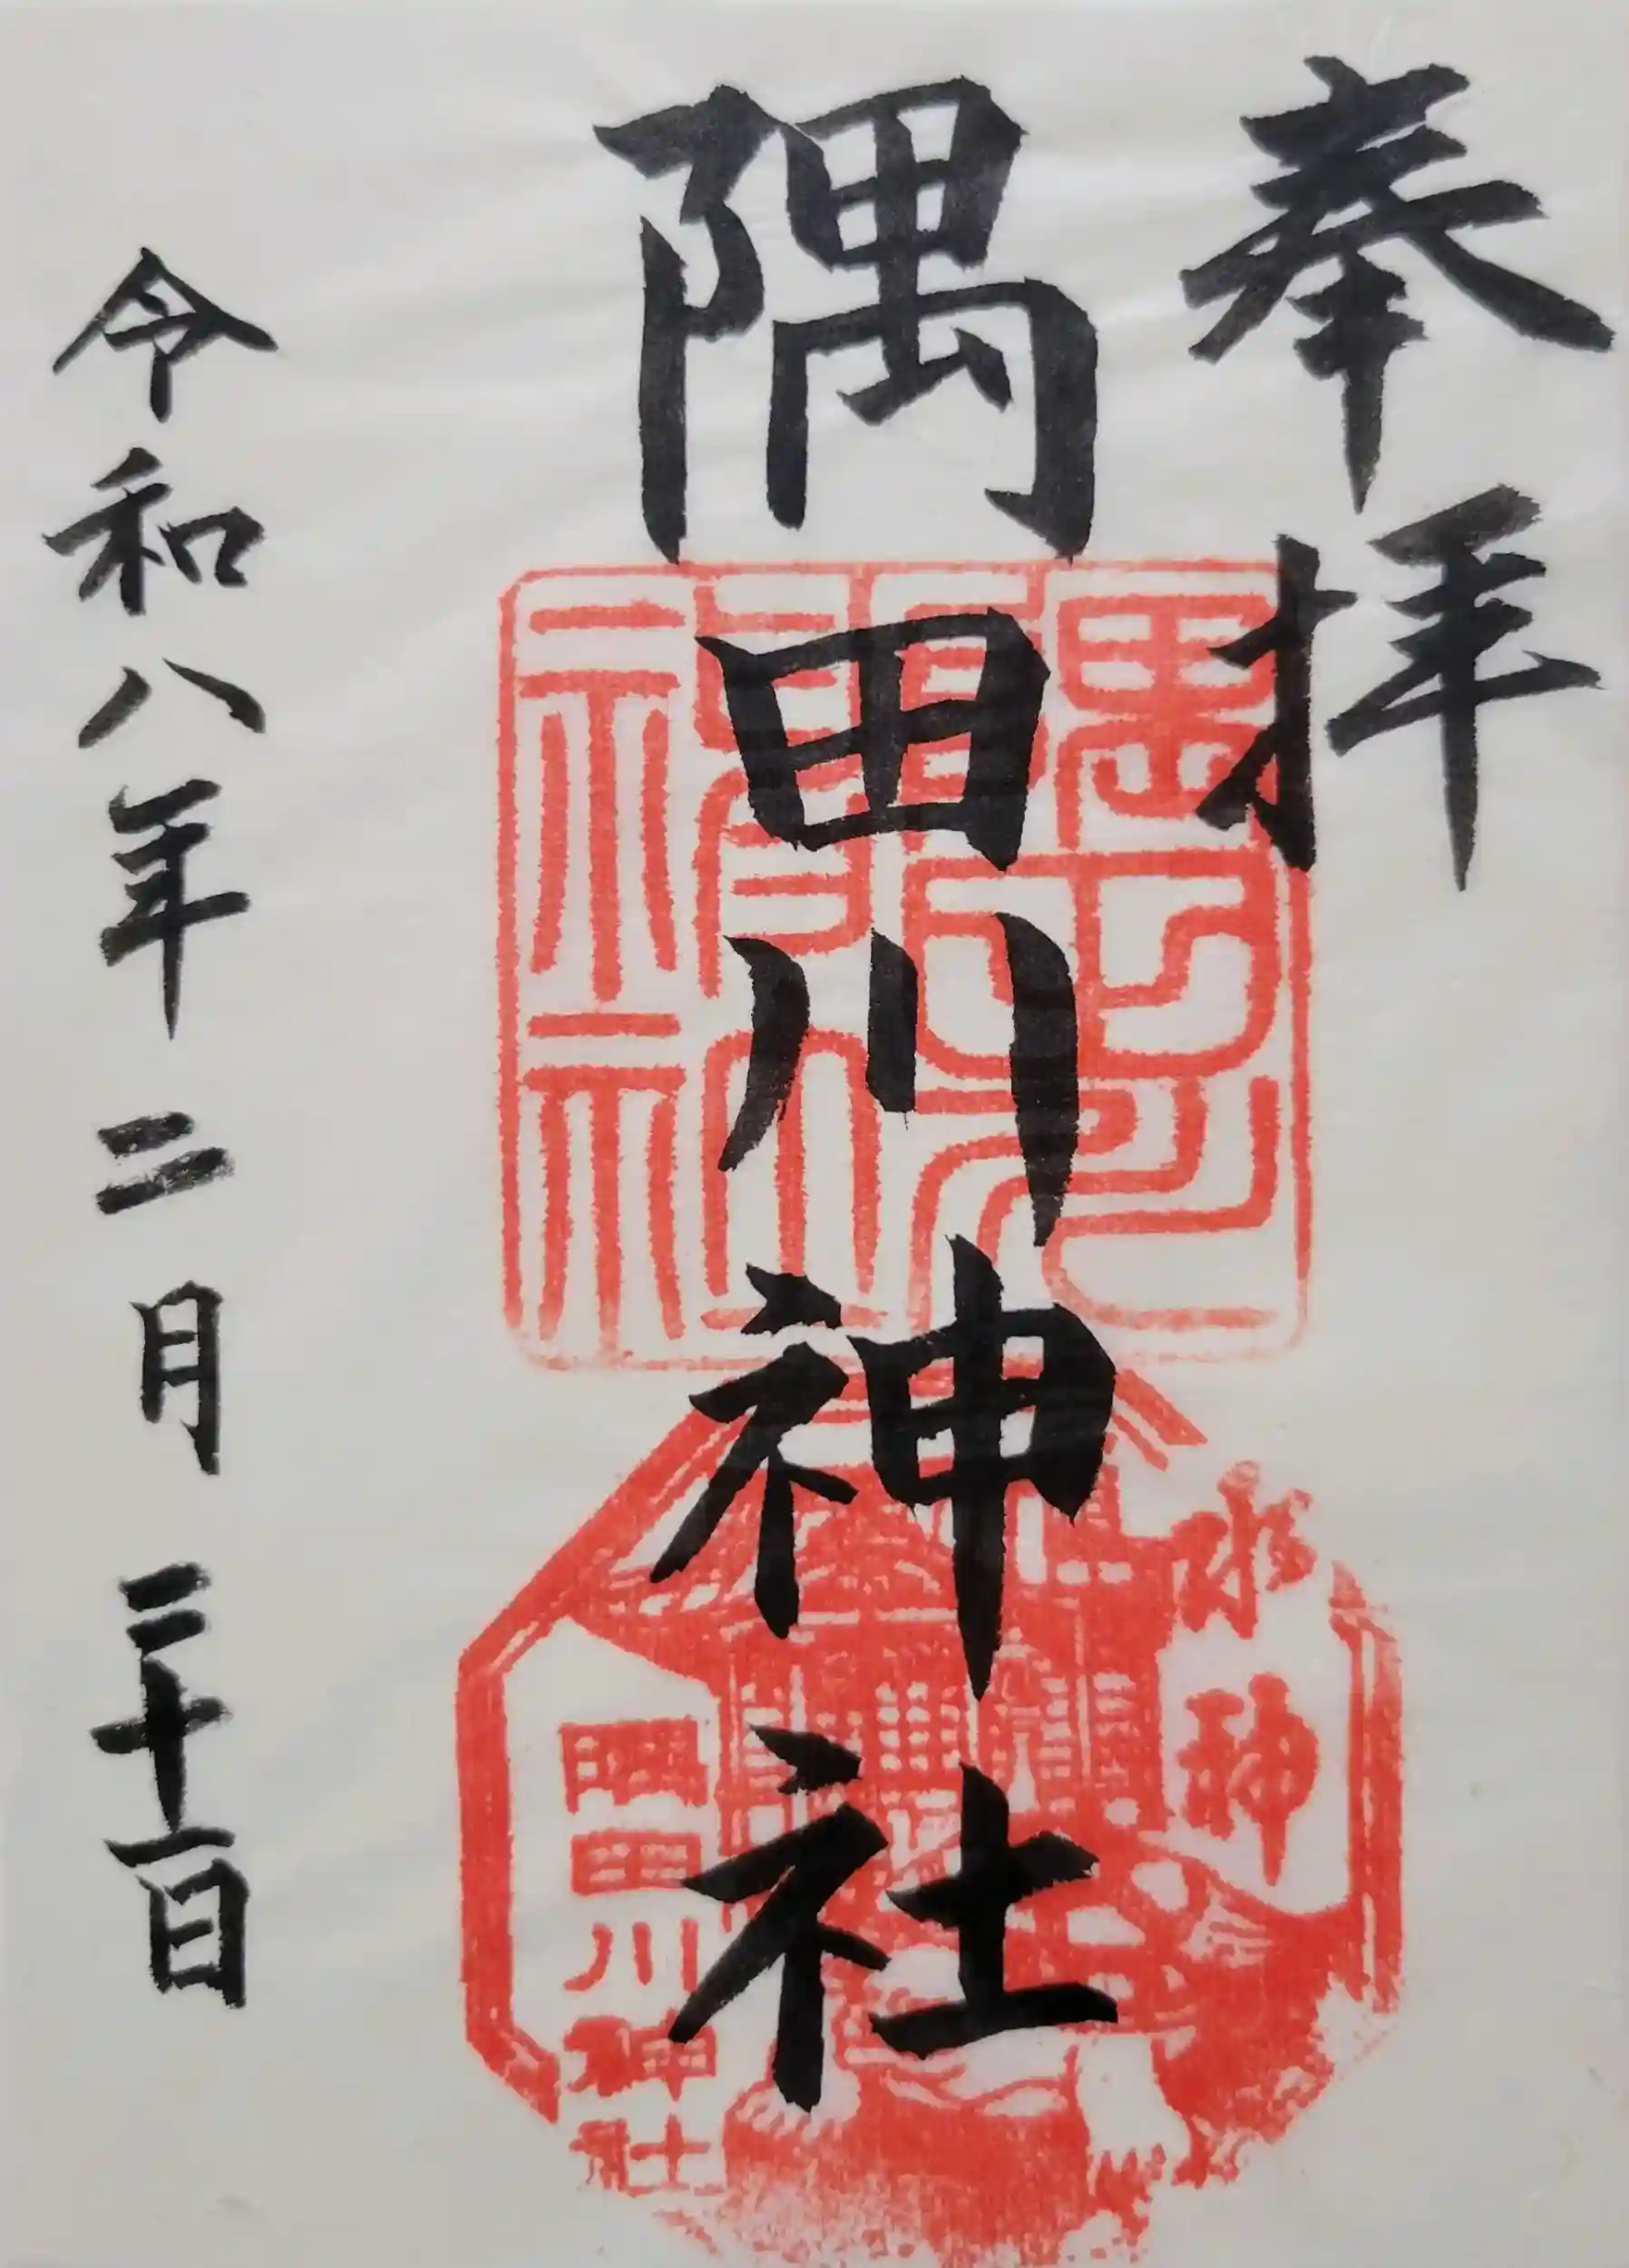 奉拝
隅田川神社
令和八年二月二十一日
水神
隅田川神社